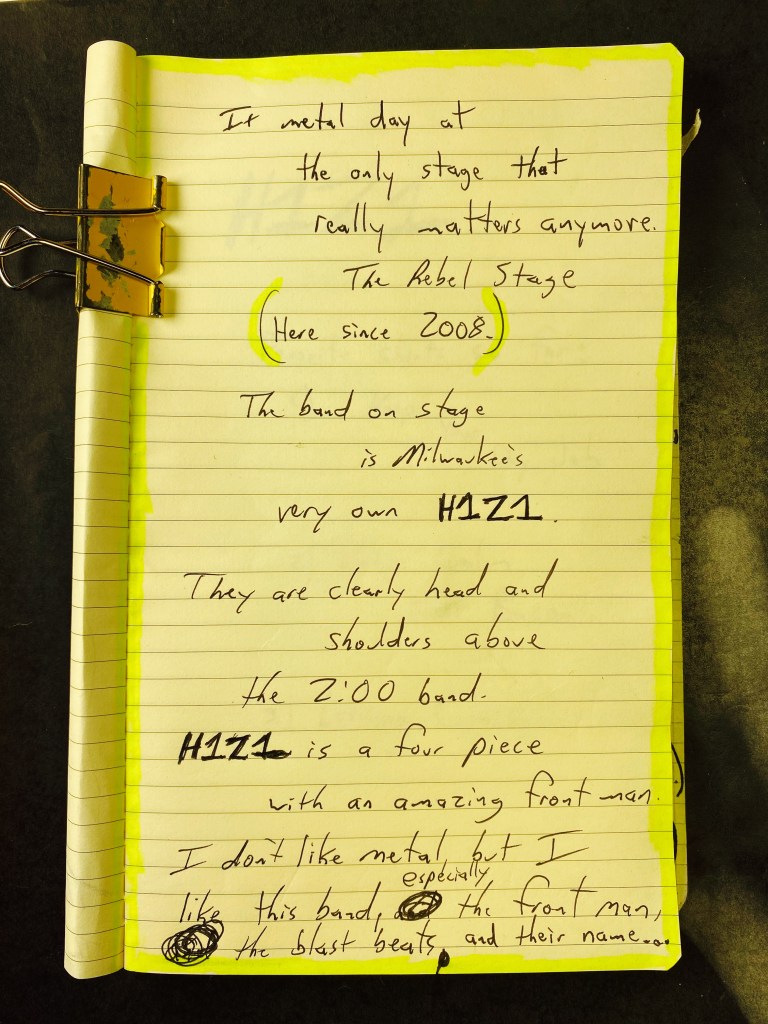 It metal day at
the only stage that
really matters anymore.
The Rebel Stage
(Here since 2008.)
The band on stage
is Milwaukee's
very own H1Z1.
They are clearly head and
shoulders above
the 2:00 band.
H1Z1 is a four piece
with an amazing front man.
I don't like metal but I
especially
like this band, the front man,
the blast beats, and their name...